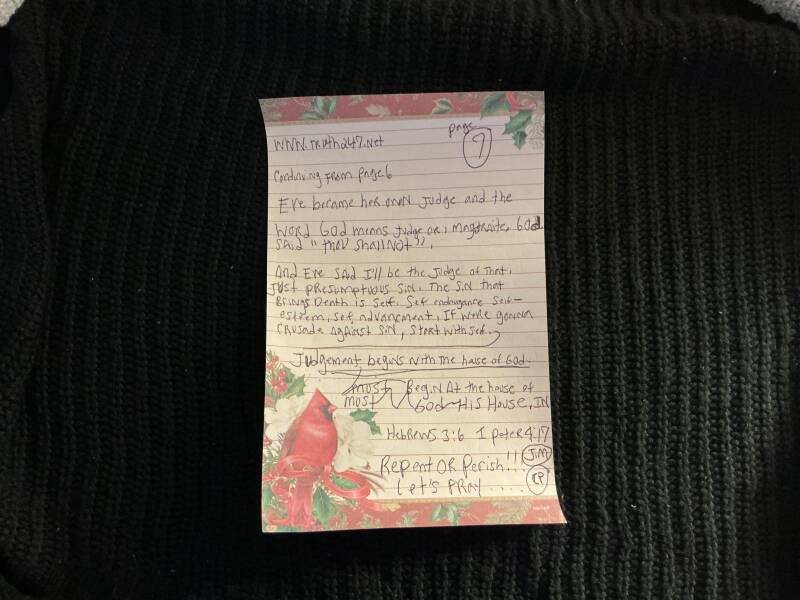 page
7
WWW.truth247.net
Continuing From page 6
Eve became her own Judge and the
Word God means Judge or, Magstraite, God
SAID "thou shall NOT",
And Eve SAD I'll be the Judge of that.
Just presumptuous Sin. The Sin that
Brings Death is Self. Self Self-
esteem, Self advancement, If we're gonna
Crusade Against Sin, Start with Self.
Judgement, begins with the house of God.
must Begin At the house of
must God His House, IN
Hebrews 3:6 I peter 4:17
Repent OR Perish!!! Jim
Let's PRAY..... CP